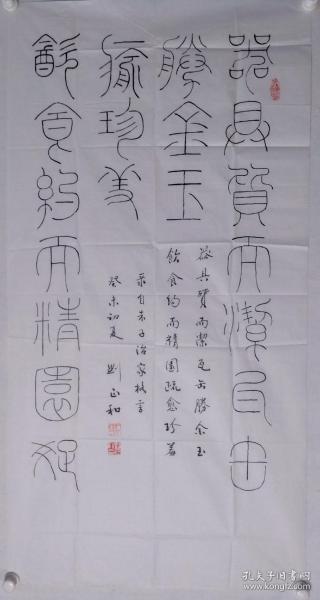 器具質而潔瓦缶
勝金玉
飲食約而精園蔬
愈珍羞
器具質而潔瓦缶勝金玉
飲食約而精園蔬愈珍羞
录自朱子治家格言
癸未初夏 劉正和
孔夫子旧书网